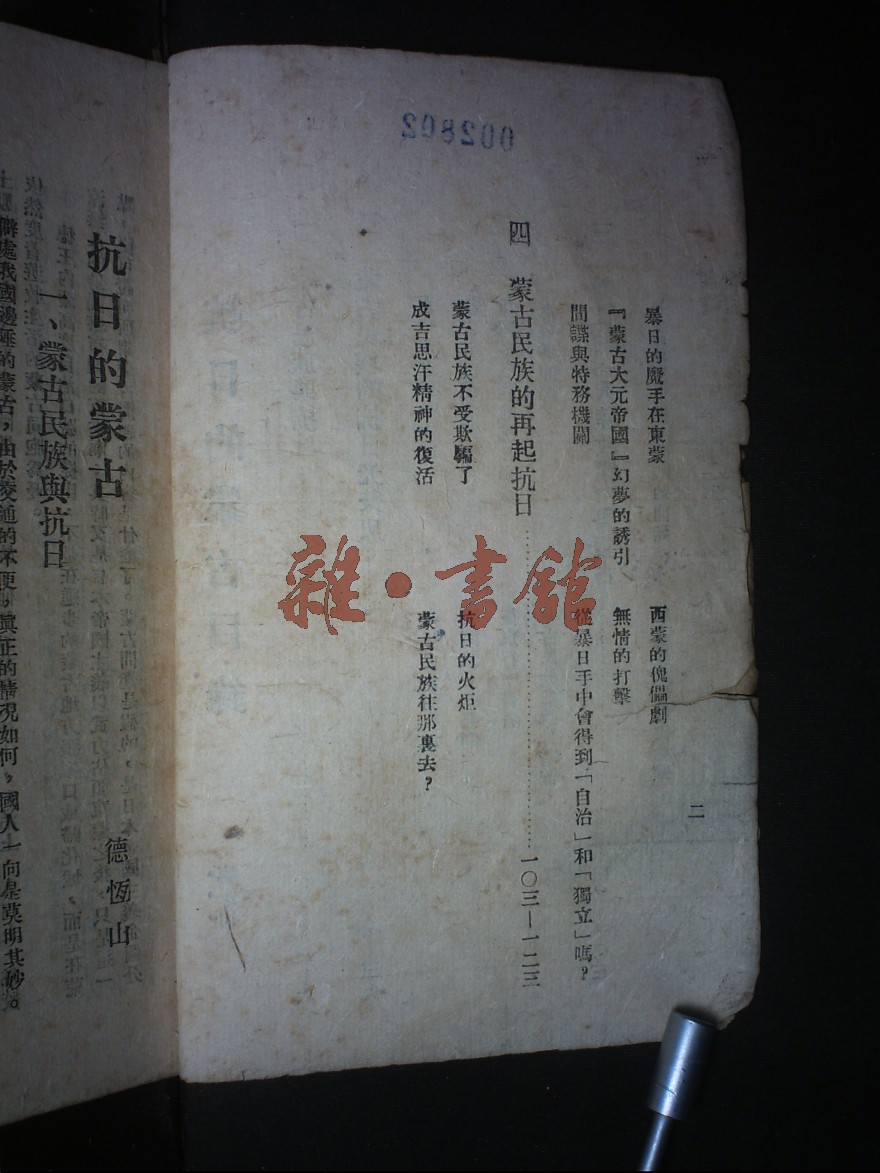 002802
二
暴日的魔手在東蒙
西蒙的傀儡劇
『蒙古大元帝國』幻夢的誘引
無情的打擊
間諜與特務機關
從暴日手中會得到「自治」和「獨立」嗎？
四 蒙古民族的再起抗日……一〇三—一二三
蒙古民族不受欺騙了
抗日的火炬
成吉思汗精神的復活
蒙古民族往那裏去？
雜·書館
抗日的蒙古
德恆山
一、蒙古民族與抗日
僻處我國邊陲的蒙古，由於交通的不便，眞正的情況如何，國人一向是莫明其妙。